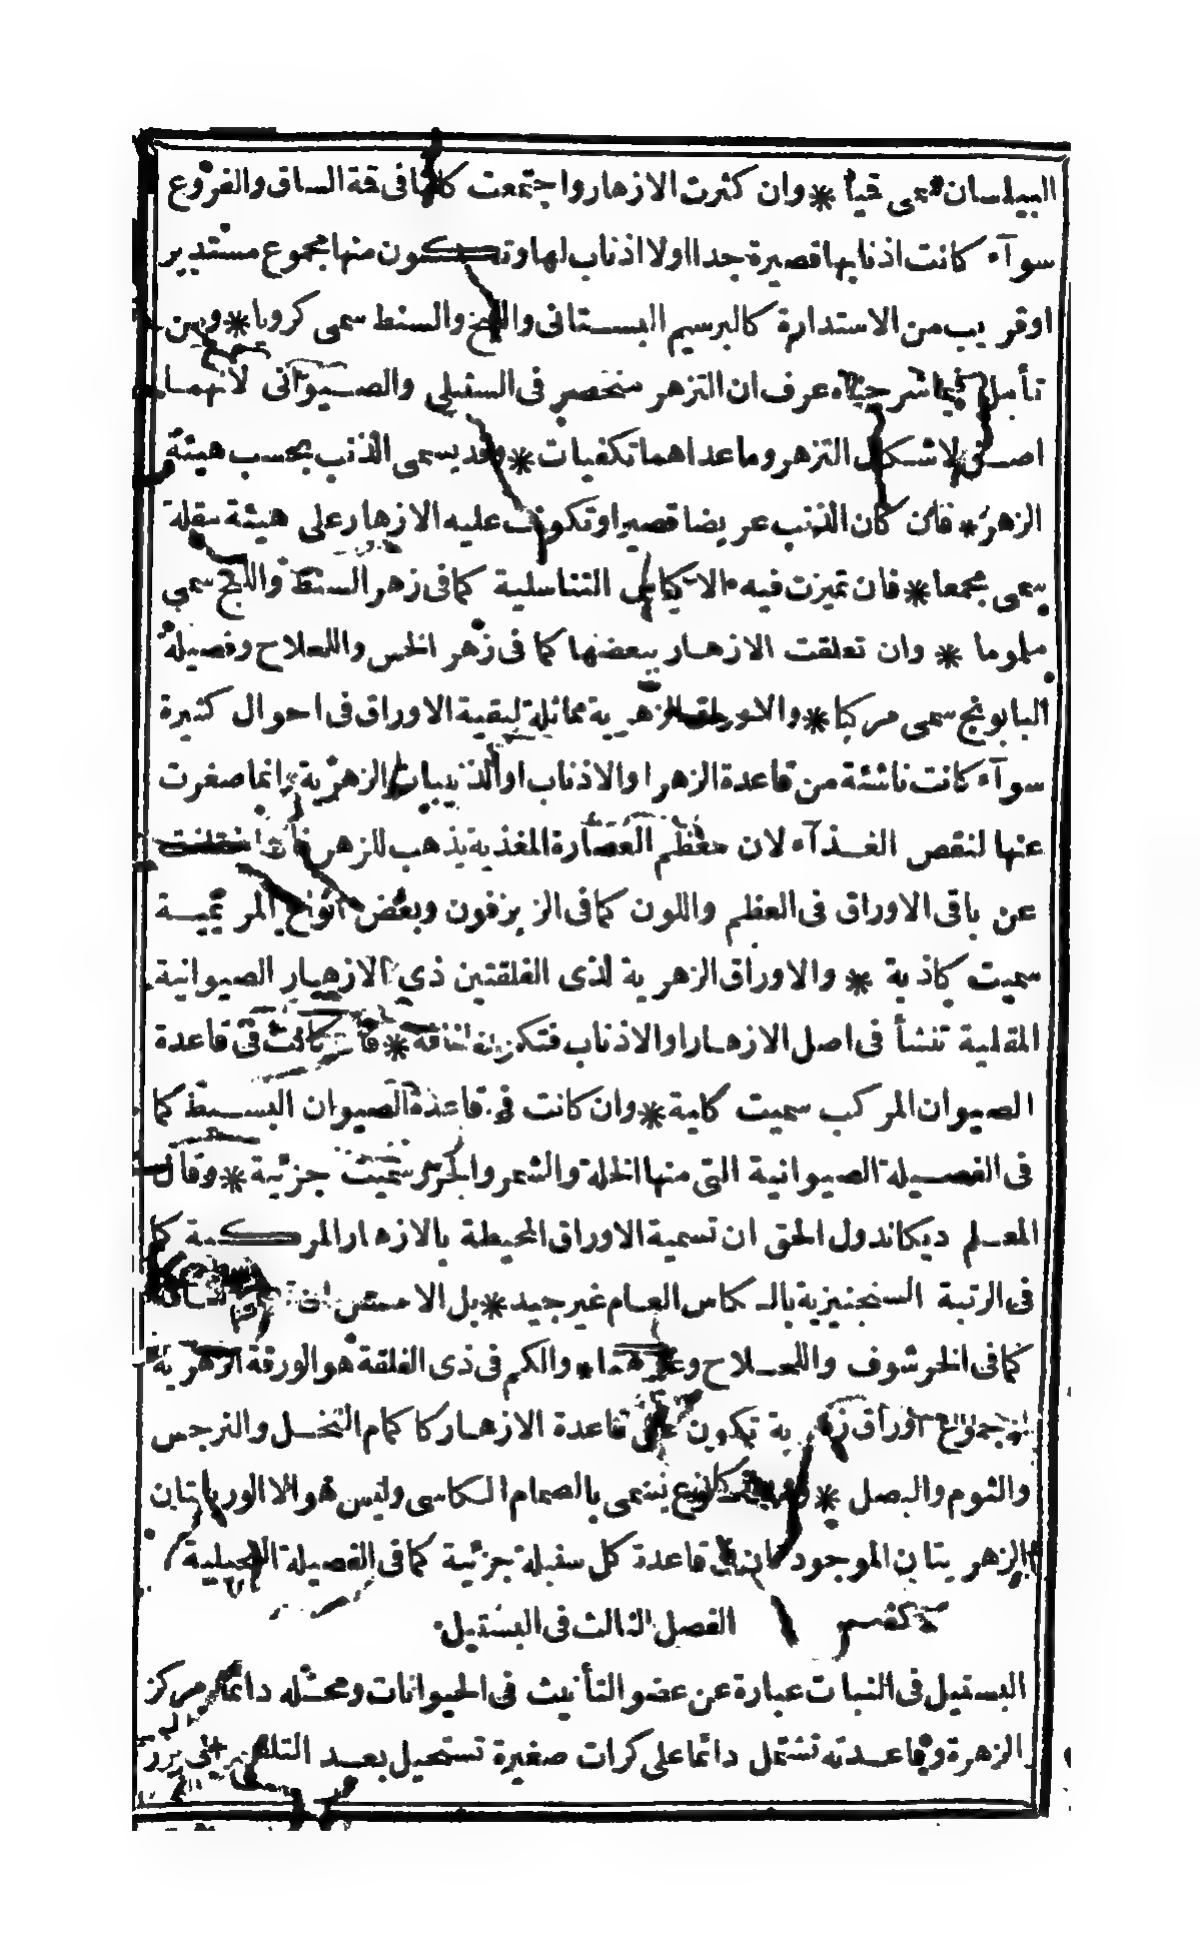 البيلسان سمى قيا * وان كثرت الازهار واجتمعت كلها فى قمة الساق والفروع
سوآء كانت اذنابها قصيرة جدا اولا اذناب لها وتكون منها مجموع مستدير
اوقريب من الاستدارة كالبرسيم البستانى واللبخ والسنط سمى كرويا *
تأمل عرف ان التزهر منحصر فى السنبلى والصيوانى لانهما
لاشكال التزهر وما عداهما تكفيات * وقد يسمى الذنب بحسب هيئة
الزهر * فان كان الذنب عريضا قصيرا وتكون عليه الازهار على هيئة
يسمى مجمعا * فان تميزت فيه التناسلية كما فى زهر السنط واللبخ سمى
ملموما * وان تعلقت الازهار ببعضها كما فى زهر الخس واللعلاح وفصيلة
البابونج سمى مركبا * والاوراق الزهرية مماثلة لبقية الاوراق فى احوال كثيرة
سوآء كانت ناشئة من قاعدة الزهر او الاذناب او الذنيبات الزهرية وانما صغرت
عنها لنقص الغذآء لان معظم العصارة المغذية يذهب للزهر فان اختلفت
عن باقى الاوراق فى العظم واللون كما فى الزيزفون وبعض انواع المريمية
سميت كاذبة * والاوراق الزهرية لذى الفلقتين ذى الازهار الصيوانية
المقلية تنشأ فى اصل الازهار او الاذناب فتكون فان كانت فى قاعدة
الصيوان المركب سميت كلية * وان كانت فى قاعدة الصيوان البسيط كما
فى الفصيلة الصيوانية التى منها الخلة والشمر والجزر سميت جزئية * وقال
المعلم ديكاندول الحق ان تسمية الاوراق المحيطة بالازهار المركبة كما
فى الرتبة السنجنيزية بالكاس العام غير جيد * بل الاحسن ان
كما فى الخرشوف واللعلاح وغيرهما * والكم فى ذى الفلقة هو الورقة الزهرية
او مجموع اوراق زهرية تكون على قاعدة الازهار كاكمام النخل والنرجس
والثوم والبصل * يسمى بالصمام الكاسى وليس هو الا الوريقتان
الزهريتان الموجودتان فى قاعدة كل سنبلة جزئية كما فى الفصيلة النجيلية
الفصل الثالث فى البستيل
البستيل فى النبات عبارة عن عضو التأنيث فى الحيوانات ومحله دائما مركز
الزهرة وقاعدته تشتمل دائما على كرات صغيرة تستحيل بعد التلقيح الى بزر